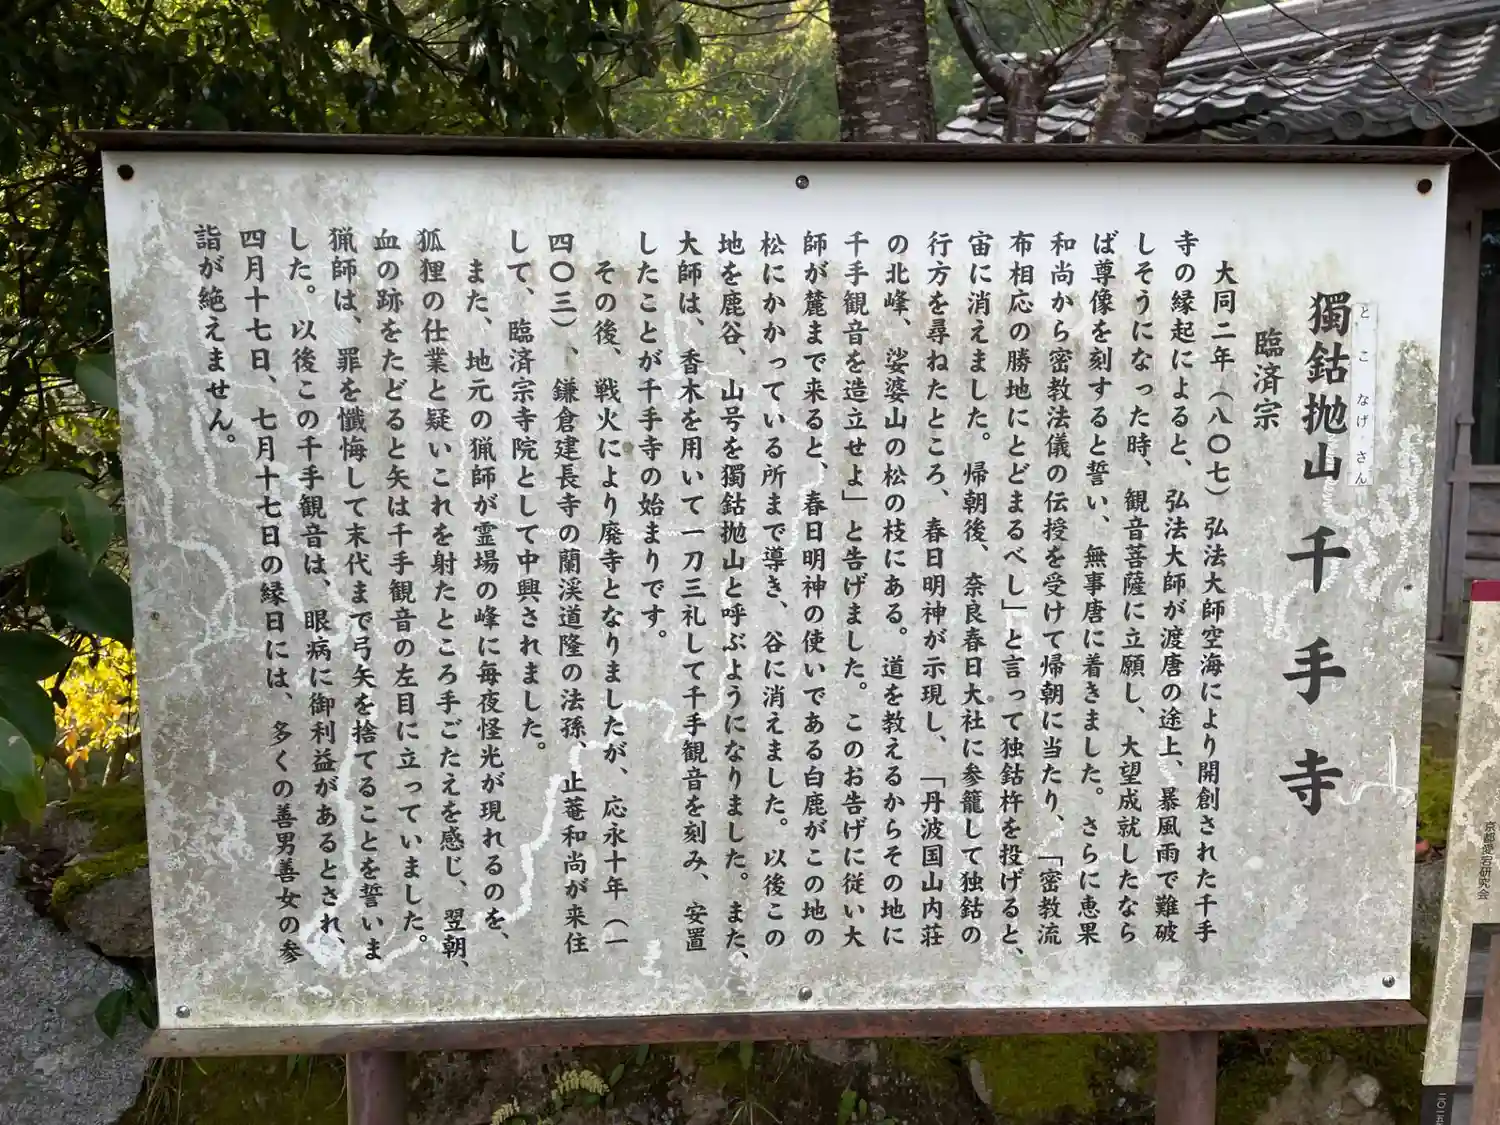 獨鈷抛山 千手寺
とこなげさん
臨済宗
大同二年（八〇七）弘法大師空海により開創された千手
寺の縁起によると、弘法大師が渡唐の途上、暴風雨で難破
しそうになった時、観音菩薩に立願し、大望成就したなら
ば尊像を刻すると誓い、無事唐に着きました。さらに恵果
和尚から密教法儀の伝授を受けて帰朝に当たり、「密教流
布相応の勝地にとどまるべし」と言って独鈷杵を投げると、
宙に消えました。帰朝後、奈良春日大社に参籠して独鈷の
行方を尋ねたところ、春日明神が示現し、「丹波国山内荘
の北峰、娑婆山の松の枝にある。道を教えるからその地に
千手観音を造立せよ」と告げました。このお告げに従い大
師が麓まで来ると、春日明神の使いである白鹿がこの地の
松にかかっている所まで導き、谷に消えました。以後この
地を鹿谷、山号を獨鈷抛山と呼ぶようになりました。また、
大師は、香木を用いて一刀三礼して千手観音を刻み、安置
したことが千手寺の始まりです。
その後、戦火により廃寺となりましたが、応永十年（一
四〇三）、鎌倉建長寺の蘭渓道隆の法孫、止菴和尚が来住
して、臨済宗寺院として中興されました。
また、地元の猟師が霊場の峰に毎夜怪光が現れるのを、
狐狸の仕業と疑いこれを射たところ手ごたえを感じ、翌朝、
血の跡をたどると矢は千手観音の左目に立っていました。
猟師は、罪を懺悔して末代まで弓矢を捨てることを誓いま
した。以後この千手観音は、眼病に御利益があるとされ、
四月十七日、七月十七日の縁日には、多くの善男善女の参
詣が絶えません。
京都愛宕研究会
二〇一五